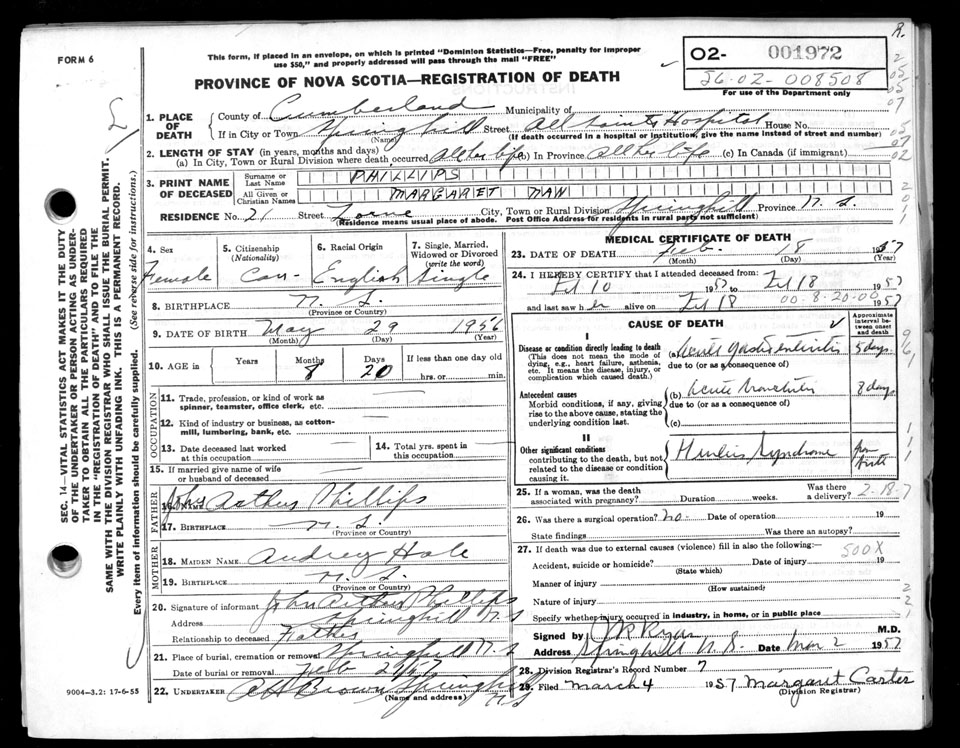 FORM 6
This form, if placed in an envelope, on which is printed "Dominion Statistics—Free, penalty for improper
use $50," and properly addressed will pass through the mail "FREE"
PROVINCE OF NOVA SCOTIA—REGISTRATION OF DEATH
R.
O2- 001972
56-02-008508
For use of the Department only
SEC. 14.—VITAL STATISTICS ACT MAKES IT THE DUTY
OF THE UNDERTAKER OR PERSON ACTING AS UNDER-
TAKER TO OBTAIN ALL THE PARTICULARS REQUIRED
IN THE "REGISTRATION OF DEATH" AND TO FILE THE
SAME WITH THE DIVISION REGISTRAR WHO SHALL ISSUE THE BURIAL PERMIT.
WRITE PLAINLY WITH UNFADING INK. THIS IS A PERMANENT RECORD.
Every item of information should be carefully supplied. (See reverse side for instructions.)
1. PLACE OF DEATH
County of Cumberland Municipality of
If in City or Town Springhill Street All Saints Hospital House No.
(Name) (If death occurred in a hospital or institution, give the name instead of street and number)
2. LENGTH OF STAY (in years, months and days)
(a) In City, Town or Rural Division where death occurred All her life (b) In Province All her life (c) In Canada (if immigrant)
3. PRINT NAME OF DECEASED
Surname or Last Name PHILLIPS
All Given or Christian Names MARGARET MAN
RESIDENCE No. 21 Street Lorne City, Town or Rural Division Springhill Province N. S.
(Residence means usual place of abode. Post Office Address for residents in rural parts not sufficient)
4. Sex Female
5. Citizenship (Nationality) Can-
6. Racial Origin English
7. Single, Married, Widowed or Divorced (write the word) Single
8. BIRTHPLACE N. S.
(Province or Country)
9. DATE OF BIRTH May 29 1956
(Month) (Day) (Year)
10. AGE in Years Months 8 Days 20 If less than one day old
hrs. or min.
OCCUPATION
11. Trade, profession, or kind of work as
spinner, teamster, office clerk, etc.
12. Kind of industry or business, as cotton-
mill, lumbering, bank, etc.
13. Date deceased last worked
at this occupation
14. Total yrs. spent in
this occupation
15. If married give name of wife
or husband of deceased
FATHER
16. Name John Arthur Phillips
17. BIRTHPLACE N. S.
(Province or Country)
MOTHER
18. MAIDEN NAME Audrey Hale
19. BIRTHPLACE N. S.
(Province or Country)
20. Signature of informant John Arthur Phillips
Address Springhill N S
Relationship to deceased Father
21. Place of burial, cremation or removal Springhill N. S
Date of burial or removal Feb 21/57
22. UNDERTAKER A H Brown Springhill
(Name and address) N S
9004—3.2: 17-6-55
MEDICAL CERTIFICATE OF DEATH
23. DATE OF DEATH Feb. 18 1957
(Month) (Day) (Year)
24. I HEREBY CERTIFY that I attended deceased from:
Feb 10 1957 to Feb 18 1957
and last saw her alive on Feb 18 1957
00-8-20-00
CAUSE OF DEATH
Approximate interval between onset and death
I
Disease or condition directly leading to death
(This does not mean the mode of
dying, e.g., heart failure, asthenia,
etc. It means the disease, injury, or
complication which caused death.)
(a) Acute gastroenteritis 5 days
due to (or as a consequence of)
Antecedent causes
Morbid conditions, if any, giving
rise to the above cause, stating the
underlying condition last.
(b) Acute bronchitis 8 days
due to (or as a consequence of)
(c)
II
Other significant conditions
contributing to the death, but not
related to the disease or condition
causing it.
Syndrome from birth
25. If a woman, was the death
associated with pregnancy? Duration weeks. Was there
a delivery? 2-18-7
26. Was there a surgical operation? no- Date of operation 19
State findings Was there an autopsy?
27. If death was due to external causes (violence) fill in also the following:—
500X
Accident, suicide or homicide? Date of injury 19
(State which)
Manner of injury
(How sustained)
Nature of injury
Specify whether injury occurred in industry, in home, or in public place
Signed by M.D.
Address Springhill N. S. Date Mar 2 1957
28. Division Registrar's Record Number 7
29. Filed March 4 1957 Margaret Carter
(Division Registrar)